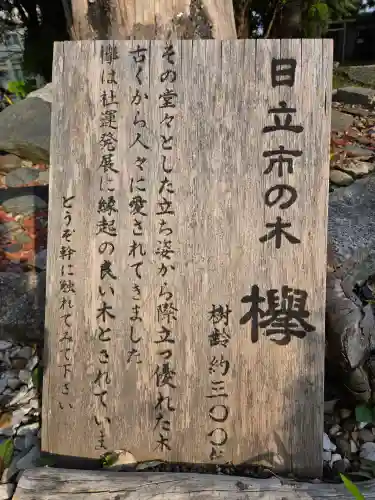 日立市の木
欅
樹齢約三〇〇年
その堂々とした立ち姿から際立つ優れた木
古くから人々に愛されてきました
欅は社運発展に縁起の良い木とされていま
どうぞ幹に触れてみて下さい